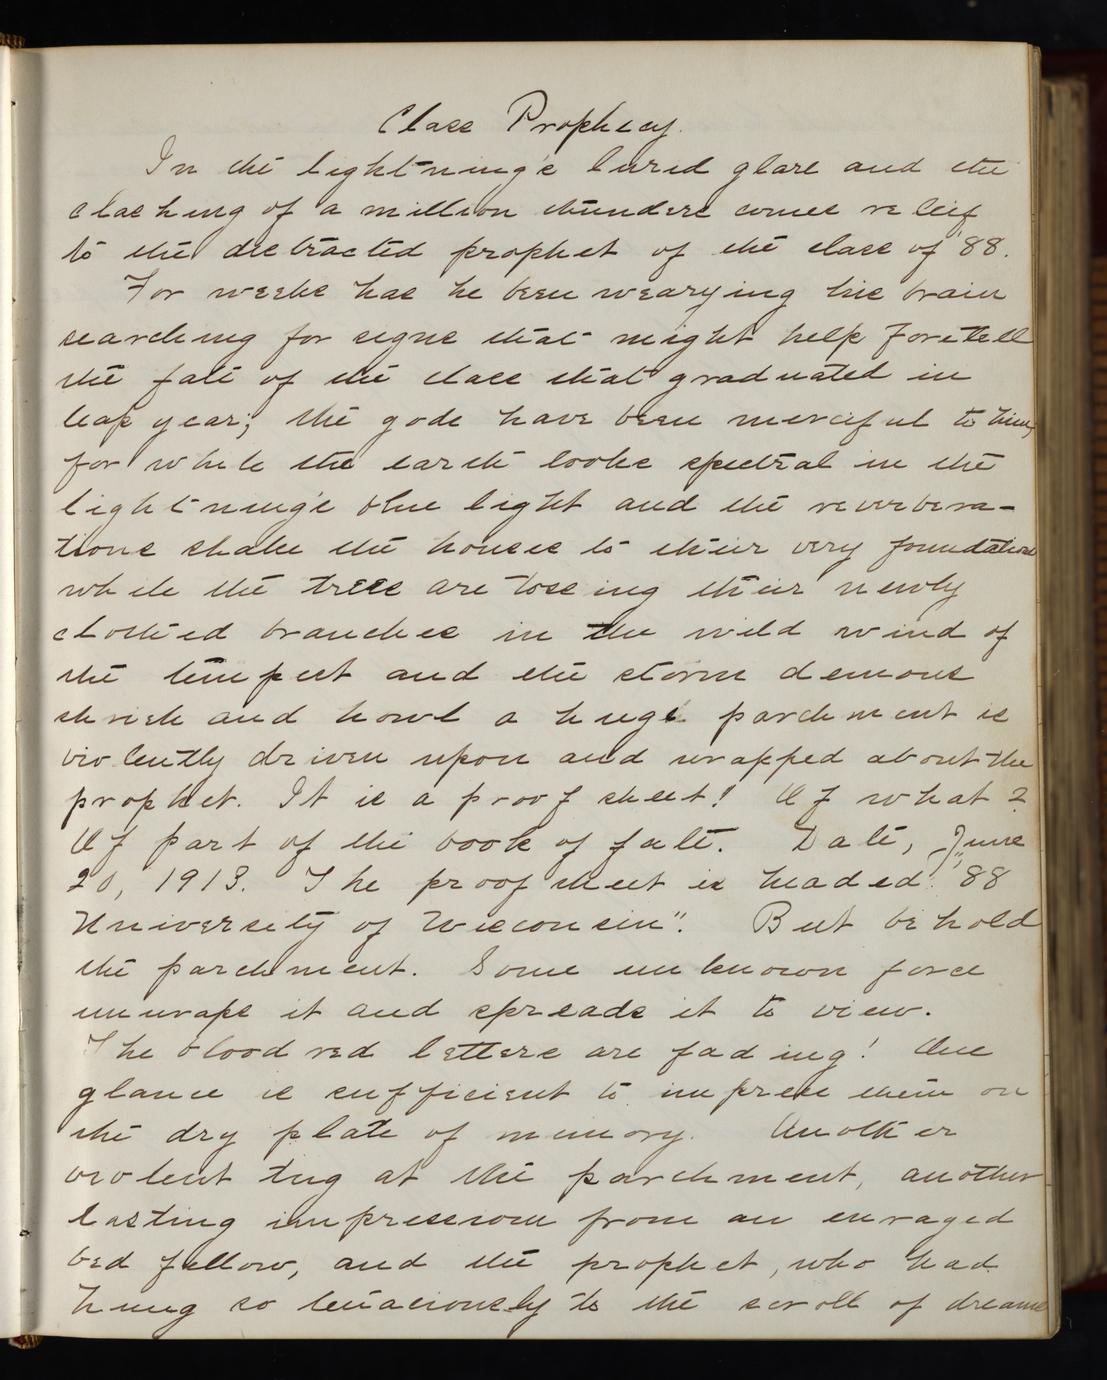 Class Prophecy.
In the lightning's lurid glare and the
clashing of a million thunders comes relief
to the distracted prophet of the class of '88.
For weeks has he been wearying his brain
searching for signs that might help foretell
the fate of the class that graduated in
leap year; the gods have been merciful to him,
for while the earth looks spectral in the
lightning's blue light and the reverbera-
tions shake the houses to their very foundations
while the trees are tossing their newly
clothed branches in the wild wind of
the tempest and the storm demons
shriek and howl a huge parchment is
violently driven upon and wrapped about the
prophet. It is a proof sheet! Of what?
Of part of the book of fate. Date, June
20, 1913. The proof sheet is headed: "'88
University of Wisconsin". But behold
the parchment. Some unknown force
unwraps it and spreads it to view.
The blood red letters are fading! One
glance is sufficient to impress them on
the dry plate of memory. Another
violent tug at the parchment, another
lasting impression from an enraged
bed fellow, and the prophet, who had
hung so tenaciously to the scroll of dreams